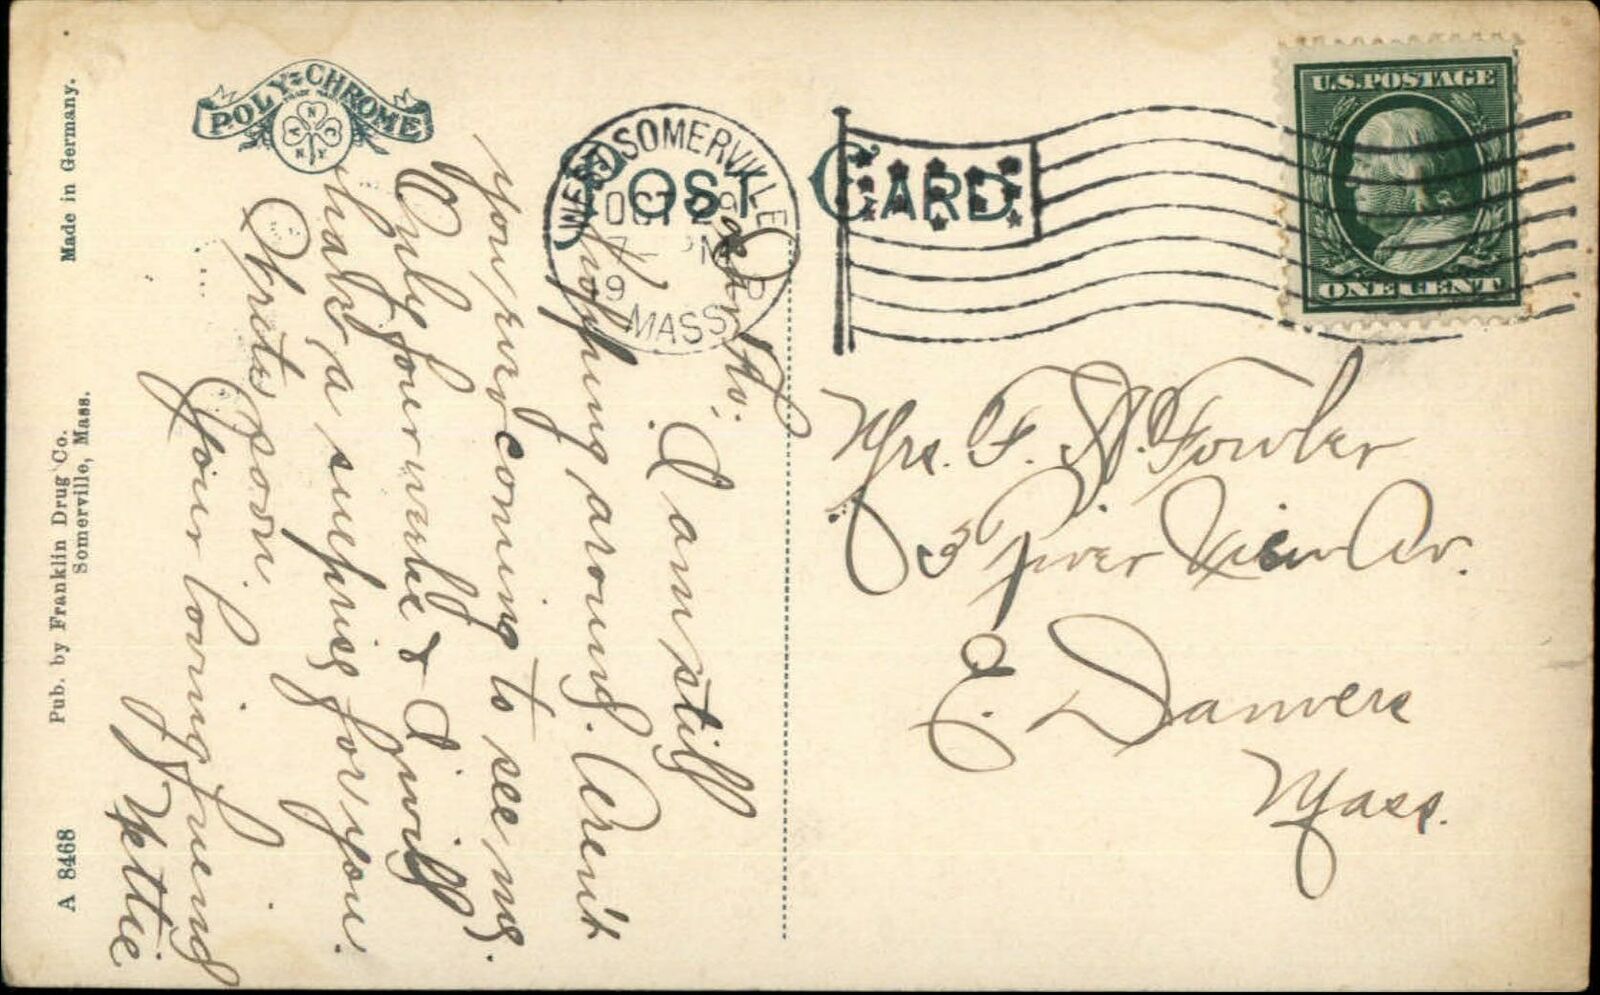 Made in Germany.
Pub. by Franklin Drug Co.
Somerville, Mass.
A 8468
POLY-CHROME
POST CARD
WEST SOMERVILLE
OCT 29
7 PM
9
MASS.
U.S. POSTAGE
ONE CENT
I am still
hopping around. Aren't
you ever coming to see me.
Only four weeks & I will
have a surprise for you.
Write soon
Your loving friend
Nettie
Mrs. F. A. Fowler
3 River View Av.
E. Danvers
Mass.